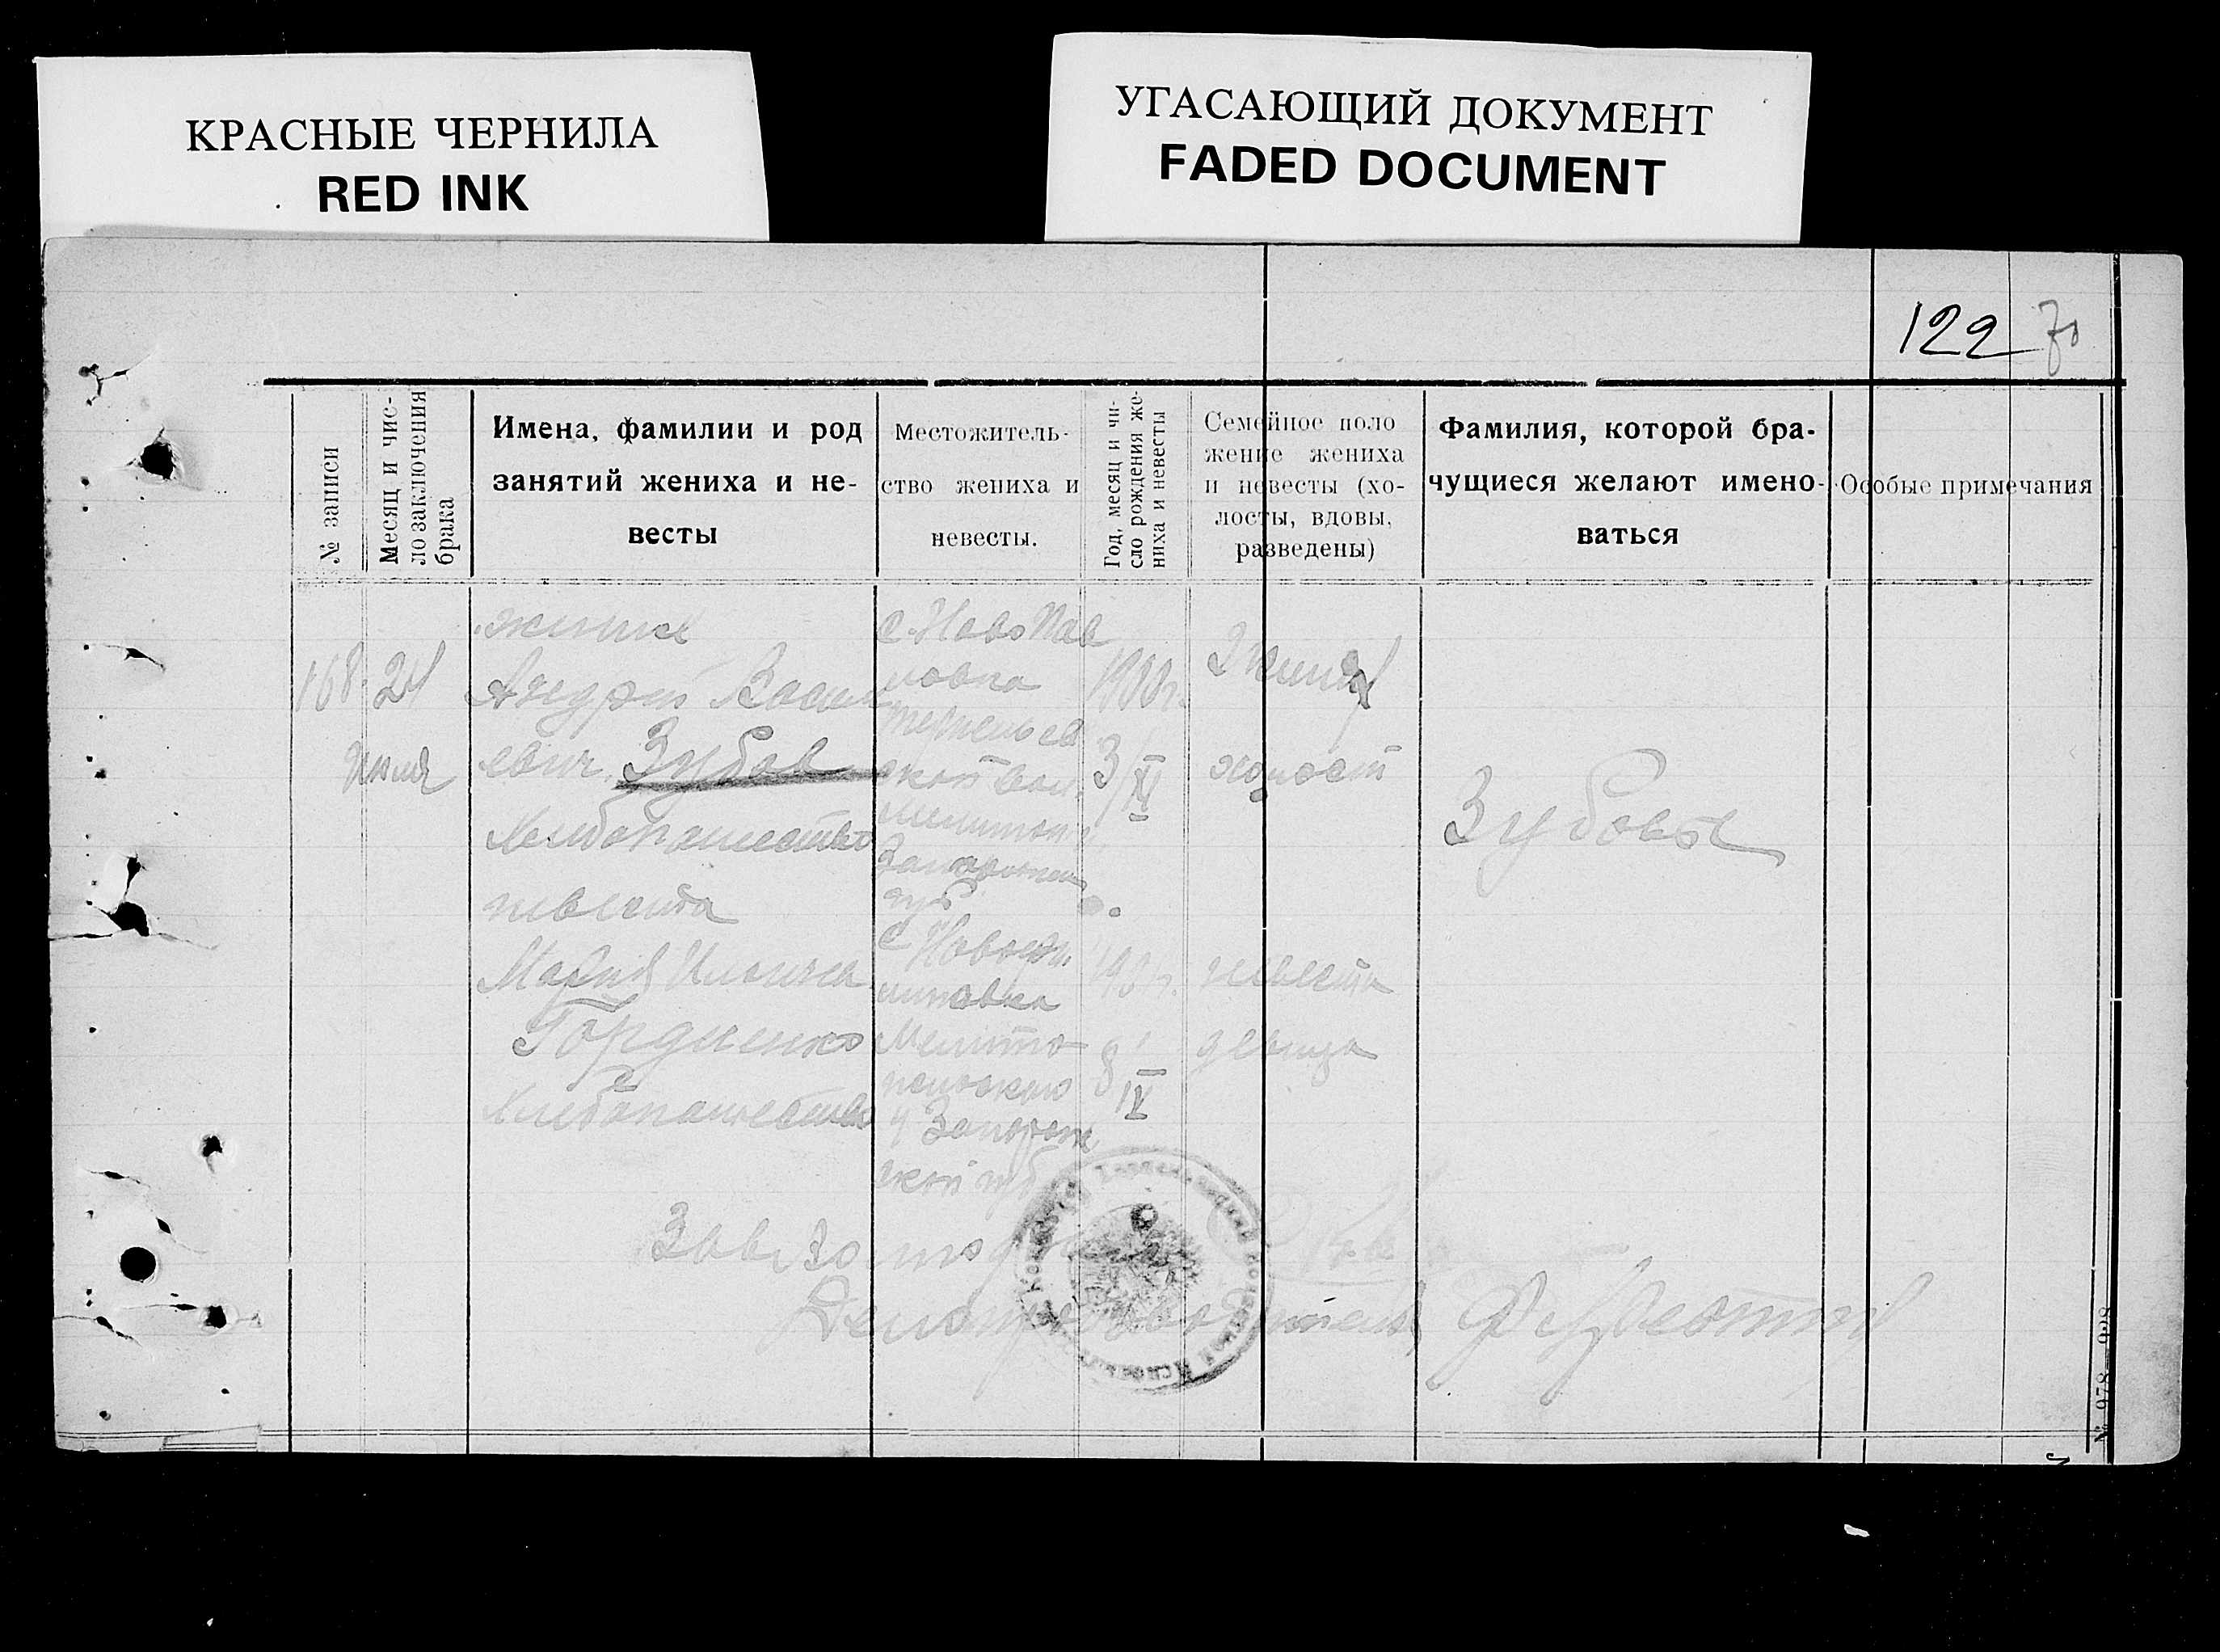 КРАСНЫЕ ЧЕРНИЛА
RED INK
УГАСАЮЩИЙ ДОКУМЕНТ
FADED DOCUMENT
122 70
№ записи
Месяц и чис-
ло заключения
брака
Имена, фамилии и род
занятий жениха и не-
весты
Местожитель-
ство жениха и
невесты.
Год, месяц и чи-
сло рождения же-
ниха и невесты
Семейное поло
жение жениха
и невесты (хо-
лосты, вдовы,
разведены)
Фамилия, которой бра-
чущиеся желают имено-
ваться
Особые примечания
168
24
Июля
жених
Андрей Васил
евич Зубов
Хлебопашество
невеста
Мария Ильична
Гордиенко
Хлебопашество
с. НовоПав
ловка
ской вол.
Мелитоп
Запорожск
губ
с Новофи
липовка
Мелито
польского
у Запорож
ской губ
1900 г.
3/XI
190 г.
8/IV
Жених
холост
невеста
девица
Зубовы
Зав. Зо
Делопроизводитель
№ 978—928